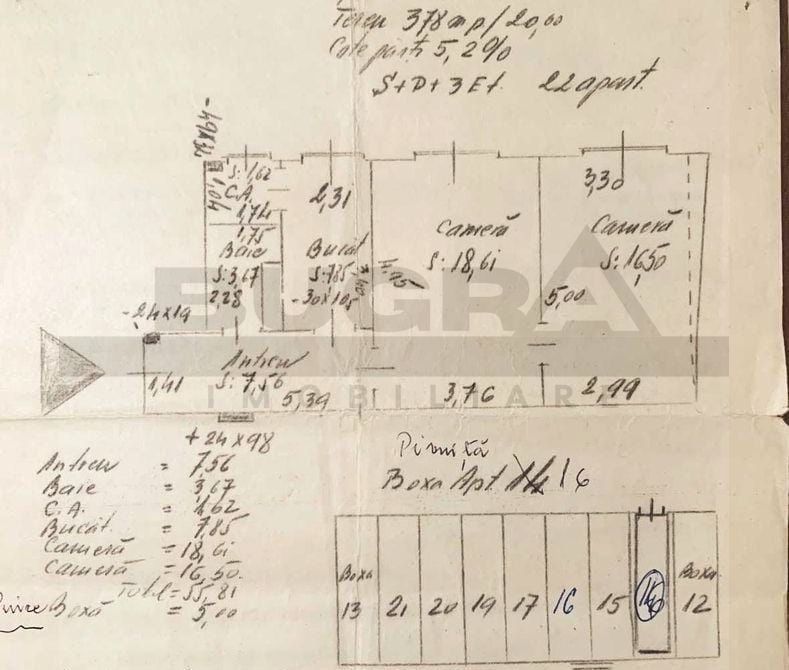 Teren 378mp/20,00
Cote părți 5,2%
S+D+3Et. 22 apart.
-49x32
1,04
S: 1,62
C.A.
1,74
1,75
Baie
S: 3,67
2,28
2,31
Bucăt
S: 7,85
3,40
-30x105
Cameră
S: 18,61
4,95
3,30
Cameră
S: 16,50
5,00
BUGRA
IMOBILIARE
-24x19
Antreu
S: 7,56
1,41
5,39
3,76
2,99
+24x98
Antreu = 7,56
Baie = 3,67
C.A. = 1,62
Bucăt. = 7,85
Cameră = 18,61
Cameră = 16,50
Total = 55,81
Boxă = 5,00
Pivniță
Boxa Apt. 14 16
Boxa 13 21 20 19 17 16 15 Boxa 12